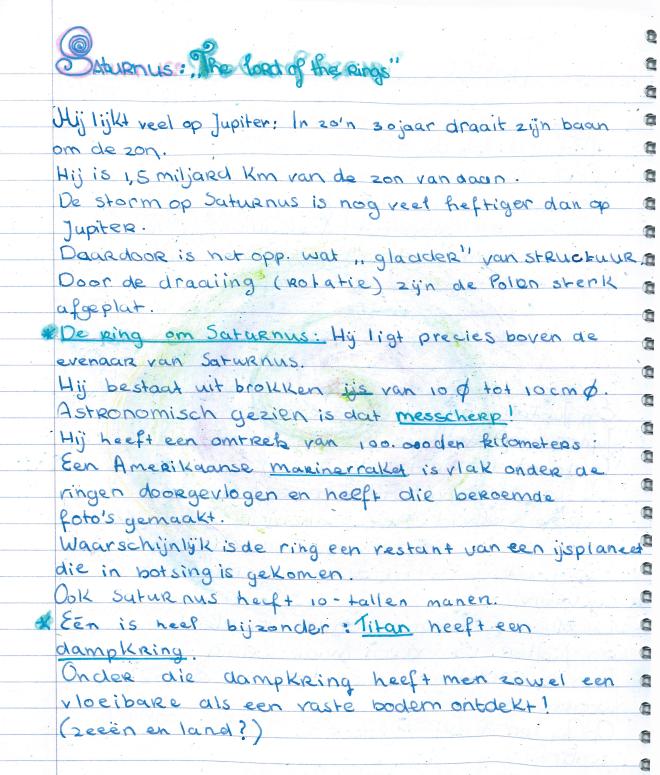 Saturnus: „The lord of the rings"
Hij lijkt veel op Jupiter: In zo'n 30 jaar draait zijn baan
om de zon.
Hij is 1,5 miljard km van de zon vandaan.
De storm op Saturnus is nog veel heftiger dan op
Jupiter.
Daardoor is het opp. wat „gladder" van structuur.
Door de draaiing (rotatie) zijn de Polen sterk
afgeplat.
* De ring om Saturnus: Hij ligt precies boven de
evenaar van Saturnus.
Hij bestaat uit brokken ijs van 10 Ø tot 10 cm Ø.
Astronomisch gezien is dat messcherp!
Hij heeft een omtrek van 100.000den kilometers:
Een Amerikaanse marinerraket is vlak onder de
ringen doorgevlogen en heeft die beroemde
foto's gemaakt.
Waarschijnlijk is de ring een restant van een ijsplaneet
die in botsing is gekomen.
Ook Saturnus heeft 10-tallen manen.
* Eén is heel bijzonder: Titan heeft een
dampkring.
Onder die dampkring heeft men zowel een
vloeibare als een vaste bodem ontdekt!
(zeeën en land?)